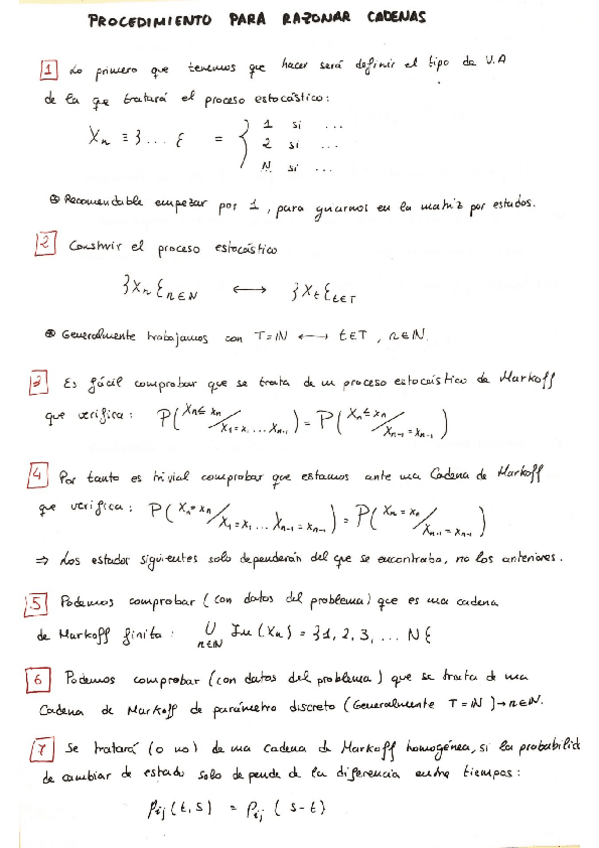 PROCEDIMIENTO PARA RAZONAR CADENAS
1 Lo primero que tenemos que hacer será definir el tipo de V.A
de la que tratará el proceso estocástico:
Xn ≡ } ... { = { 1 si ...
2 si ...
N si ...
⊛ Recomendable empezar por 1, para guiarnos en la matriz por estados.
2 Construir el proceso estocástico
}Xn{n∈N ⟷ }Xt{t∈T
⊛ Generalmente trabajamos con T=ℕ ⟷ t∈T, n∈ℕ.
3 Es fácil comprobar que se trata de un proceso estocástico de Markoff
que verifica: P(Xn≤xn / X1=x1 ... Xn-1) = P(Xn≤xn / Xn-1=xn-1)
4 Por tanto es trivial comprobar que estamos ante una Cadena de Markoff
que verifica: P(Xn=xn / X1=x1 ... Xn-1=xn-1) = P(Xn=xn / Xn-1=xn-1)
⇒ Los estados siguientes solo dependerán del que se encontraba, no los anteriores.
5 Podemos comprobar (con datos del problema) que es una cadena
de Markoff finita: U n∈N Im(Xn) = }1, 2, 3, ... N{
6 Podemos comprobar (con datos del problema) que se trata de una
Cadena de Markoff de parámetro discreto (Generalmente T=ℕ)→n∈N.
7 Se tratará (o no) de una cadena de Markoff homogénea, si la probabilid
de cambiar de estado solo depende de la diferencia entre tiempos:
Pij (t,s) = Pij (s-t)